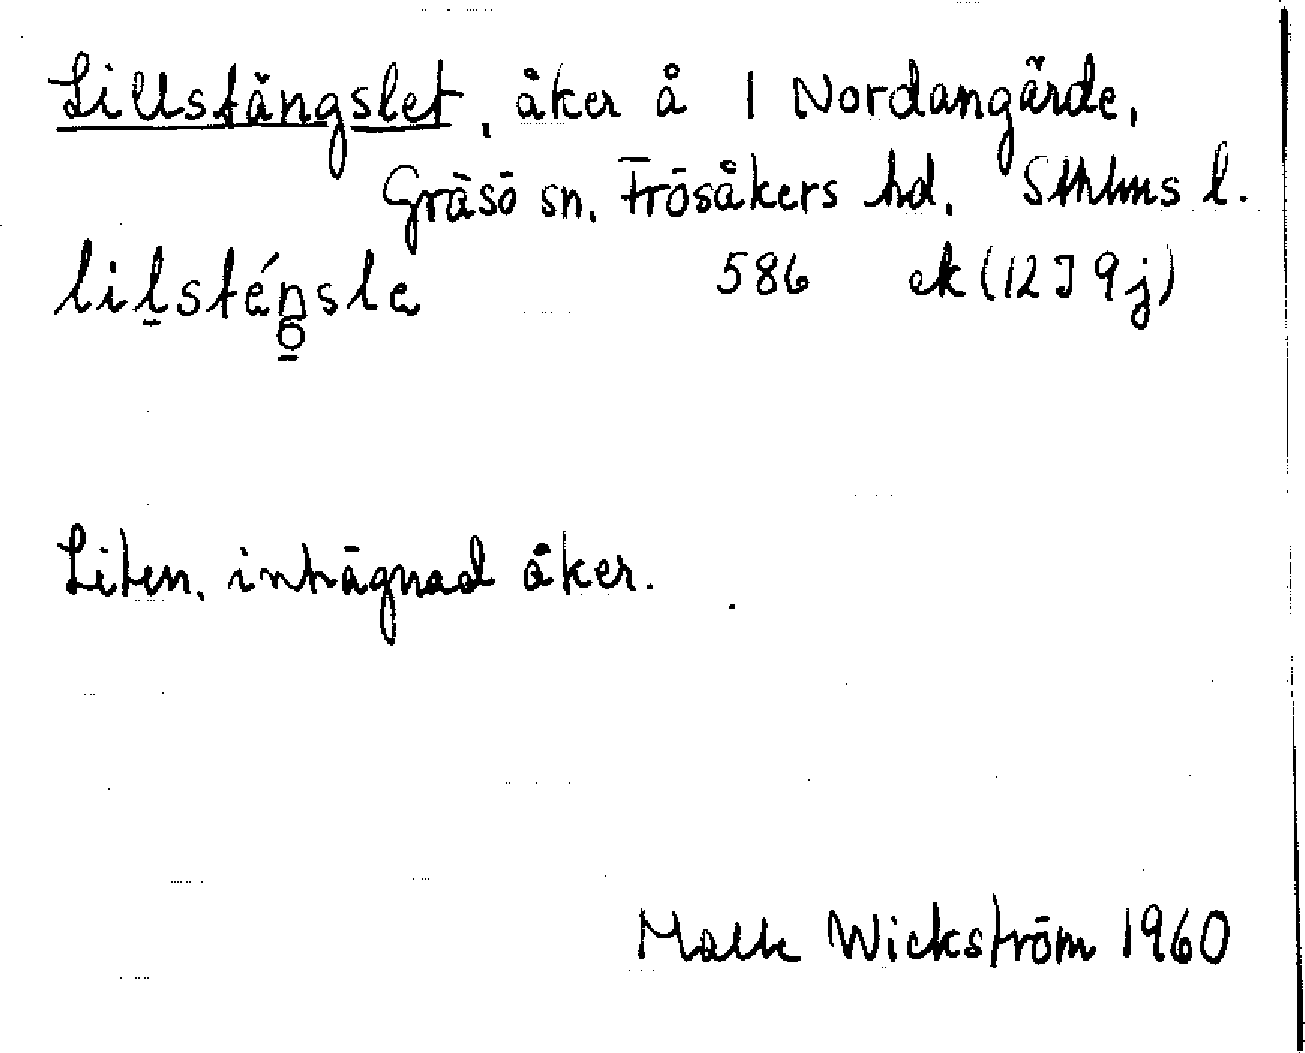 Lillstängslet, åker å 1 Nordangärde,
Gräsö sn. Frösåkers hd. Sthlms l.
586 ek (12 I 9 j)
Liten, inhägnad åker.
Wickström 1960